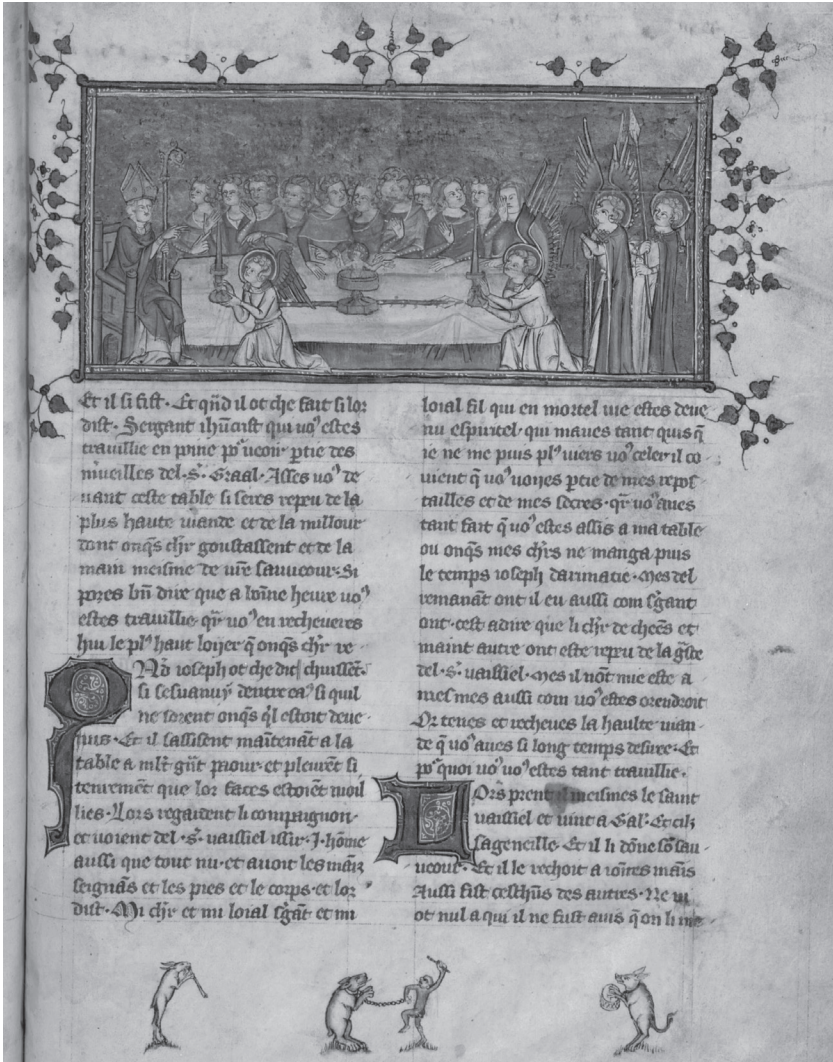 Et il si fist. Et qñd il ot che fait si lor
dist. Sergant ihũcrist qui vo⁹ estes
travillie en paine po᷑ veoir ꝑtie des
m̾veilles del. S᷑. Graal. Asses vo⁹ de
uant ceste table si seres repeu de la
plus haute viande et de la millour
dont onq̃s ch̾r goustassent et de la
main meisme de vr̃e sauueour. Si
pores bñ dire que a boine heure vo⁹
estes travillie. qr̃ vo⁹ en recheveres
hui le pl⁹ haut loijer q̃ onq̃s ch̾r re
Qñd ioseph ot che dit
si sesuanuy dentre ca⁹ si quil
ne sorent onq̃s q̃l estoit deue
nus. Et il sassisent maĩtenãt a la
table a ml̃t gñt paour. et pleurẽt si
tenremẽt que lor faces estoiẽt moil
lies. Lors regardent li compaignon.
et voient del. S᷑. vaissiel issir. J. hõme
aussi que tout nu. et auoit les maĩs
seignãs et les pies et le corps. et lor
dist. Mi ch̾r et mi loial sg̾ãt et mi
loial fil qui en mortel uie estes deve
nu espiritel. qui maues tant quis q̃
ie ne me puis pl⁹ viers vo⁹ celer il co
vient q̃ vo⁹ voijes ꝑtie de mes repos
tailles et de mes secres. qr̃ vo⁹ aues
tant fait q̃ vo⁹ estes assis a ma table
ou onq̃s mes ch̾rs ne manga puis
le temps ioseph darimatie. Mes del
remanãt ont il eu aussi com sg̾ant
ont. cest adire que li ch̾r de cheẽs et
maint autre ont este repeu de la gr̃se
del. S᷑. vaissiel. Mes il nõt mie este a
mesmes aussi com vo⁹ estes orendroit
Or tenes et recheues la haulte uian
de q̃ vo⁹ aues si long temps desiree. Et
po᷑ quoi vo⁹ vo⁹ estes tant travillie.
Lors prent il meismes le saint
vaissiel et vint a Gal᷑. Et cilz
sageneille. Et il li dõne sõ sau
ueour. Et il le rechoit a ioĩtes maĩs
Aussi fist ceschũs des autres. Ne ni
ot nul a qui il ne fust auis q̃ on li me